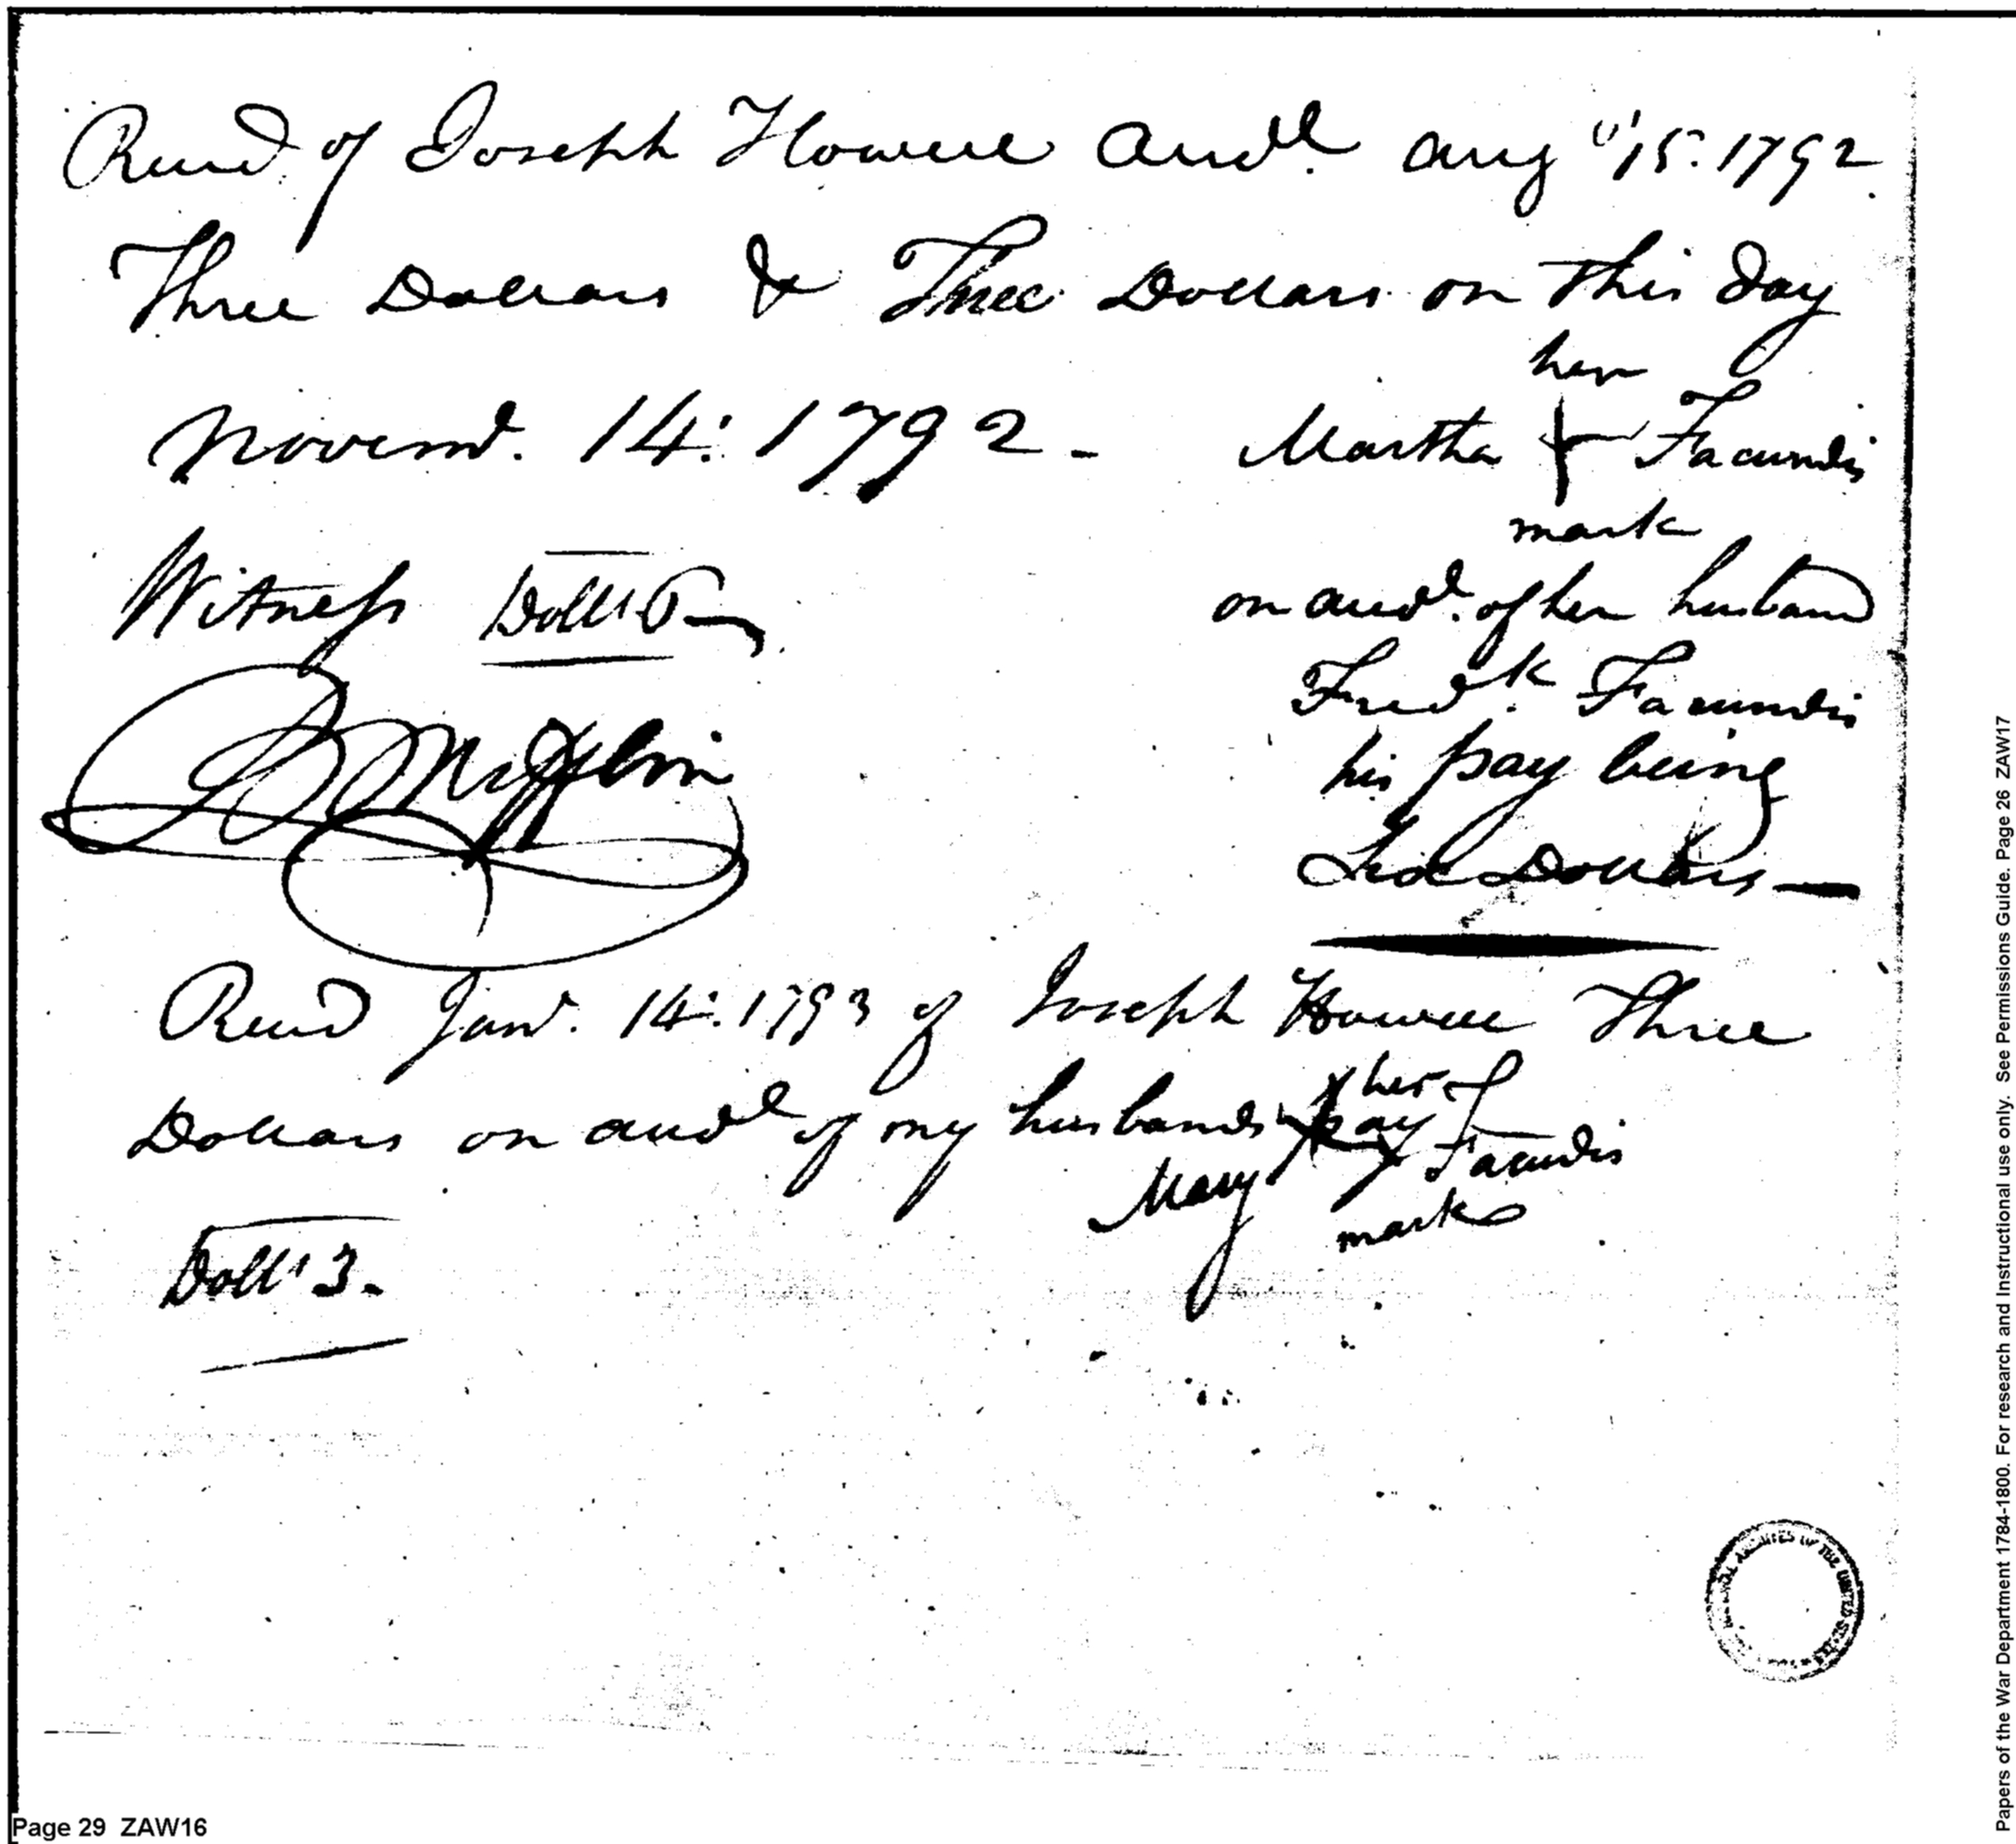 Recd. of Joseph Howell Accot. Aug 15. 1792
Three Dollars & Three Dollars on this day
Novem. 14: 1792 -
her
Martha + Facundis
mark
Witness Dolls 6
on accot. of her husband
Fredk. Facundis
his pay being
Six Dollars —
Mifflin
Recd Jany. 14: 1793 of Joseph Howell Three
Dollars on accot of my husbands pay
her
Mary Facundis
mark
Dolls 3.
Page 29 ZAW16
Papers of the War Department 1784-1800. For research and Instructional use only. See Permissions Guide. Page 26 ZAW17